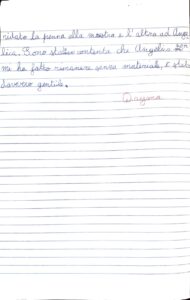 ridato la penna alla maestra e l'altra ad Ange
lica. Sono stata contenta che Angelica non
mi ha fatto rimanere senza materiale, è stata
davvero gentile.